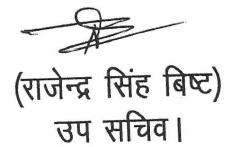 (राजेन्द्र सिंह बिष्ट)
उप सचिव।